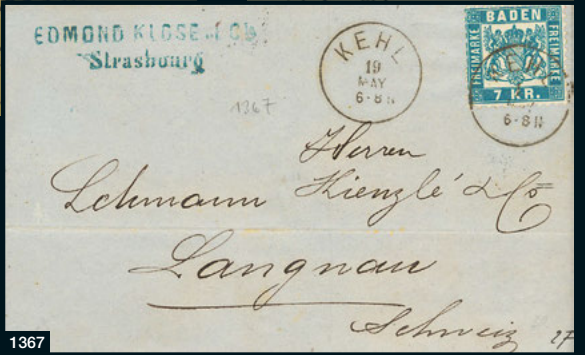 EDMOND KLOSE & Cie
Strasbourg
KEHL
19
MAY
6-8N
BADEN
FREIMARKE
FREIMARKE
7 KR.
KEHL
6-8N
1367
Herren
Lehmann Kienzlé & Co
Langnau
Schweiz
27
1367